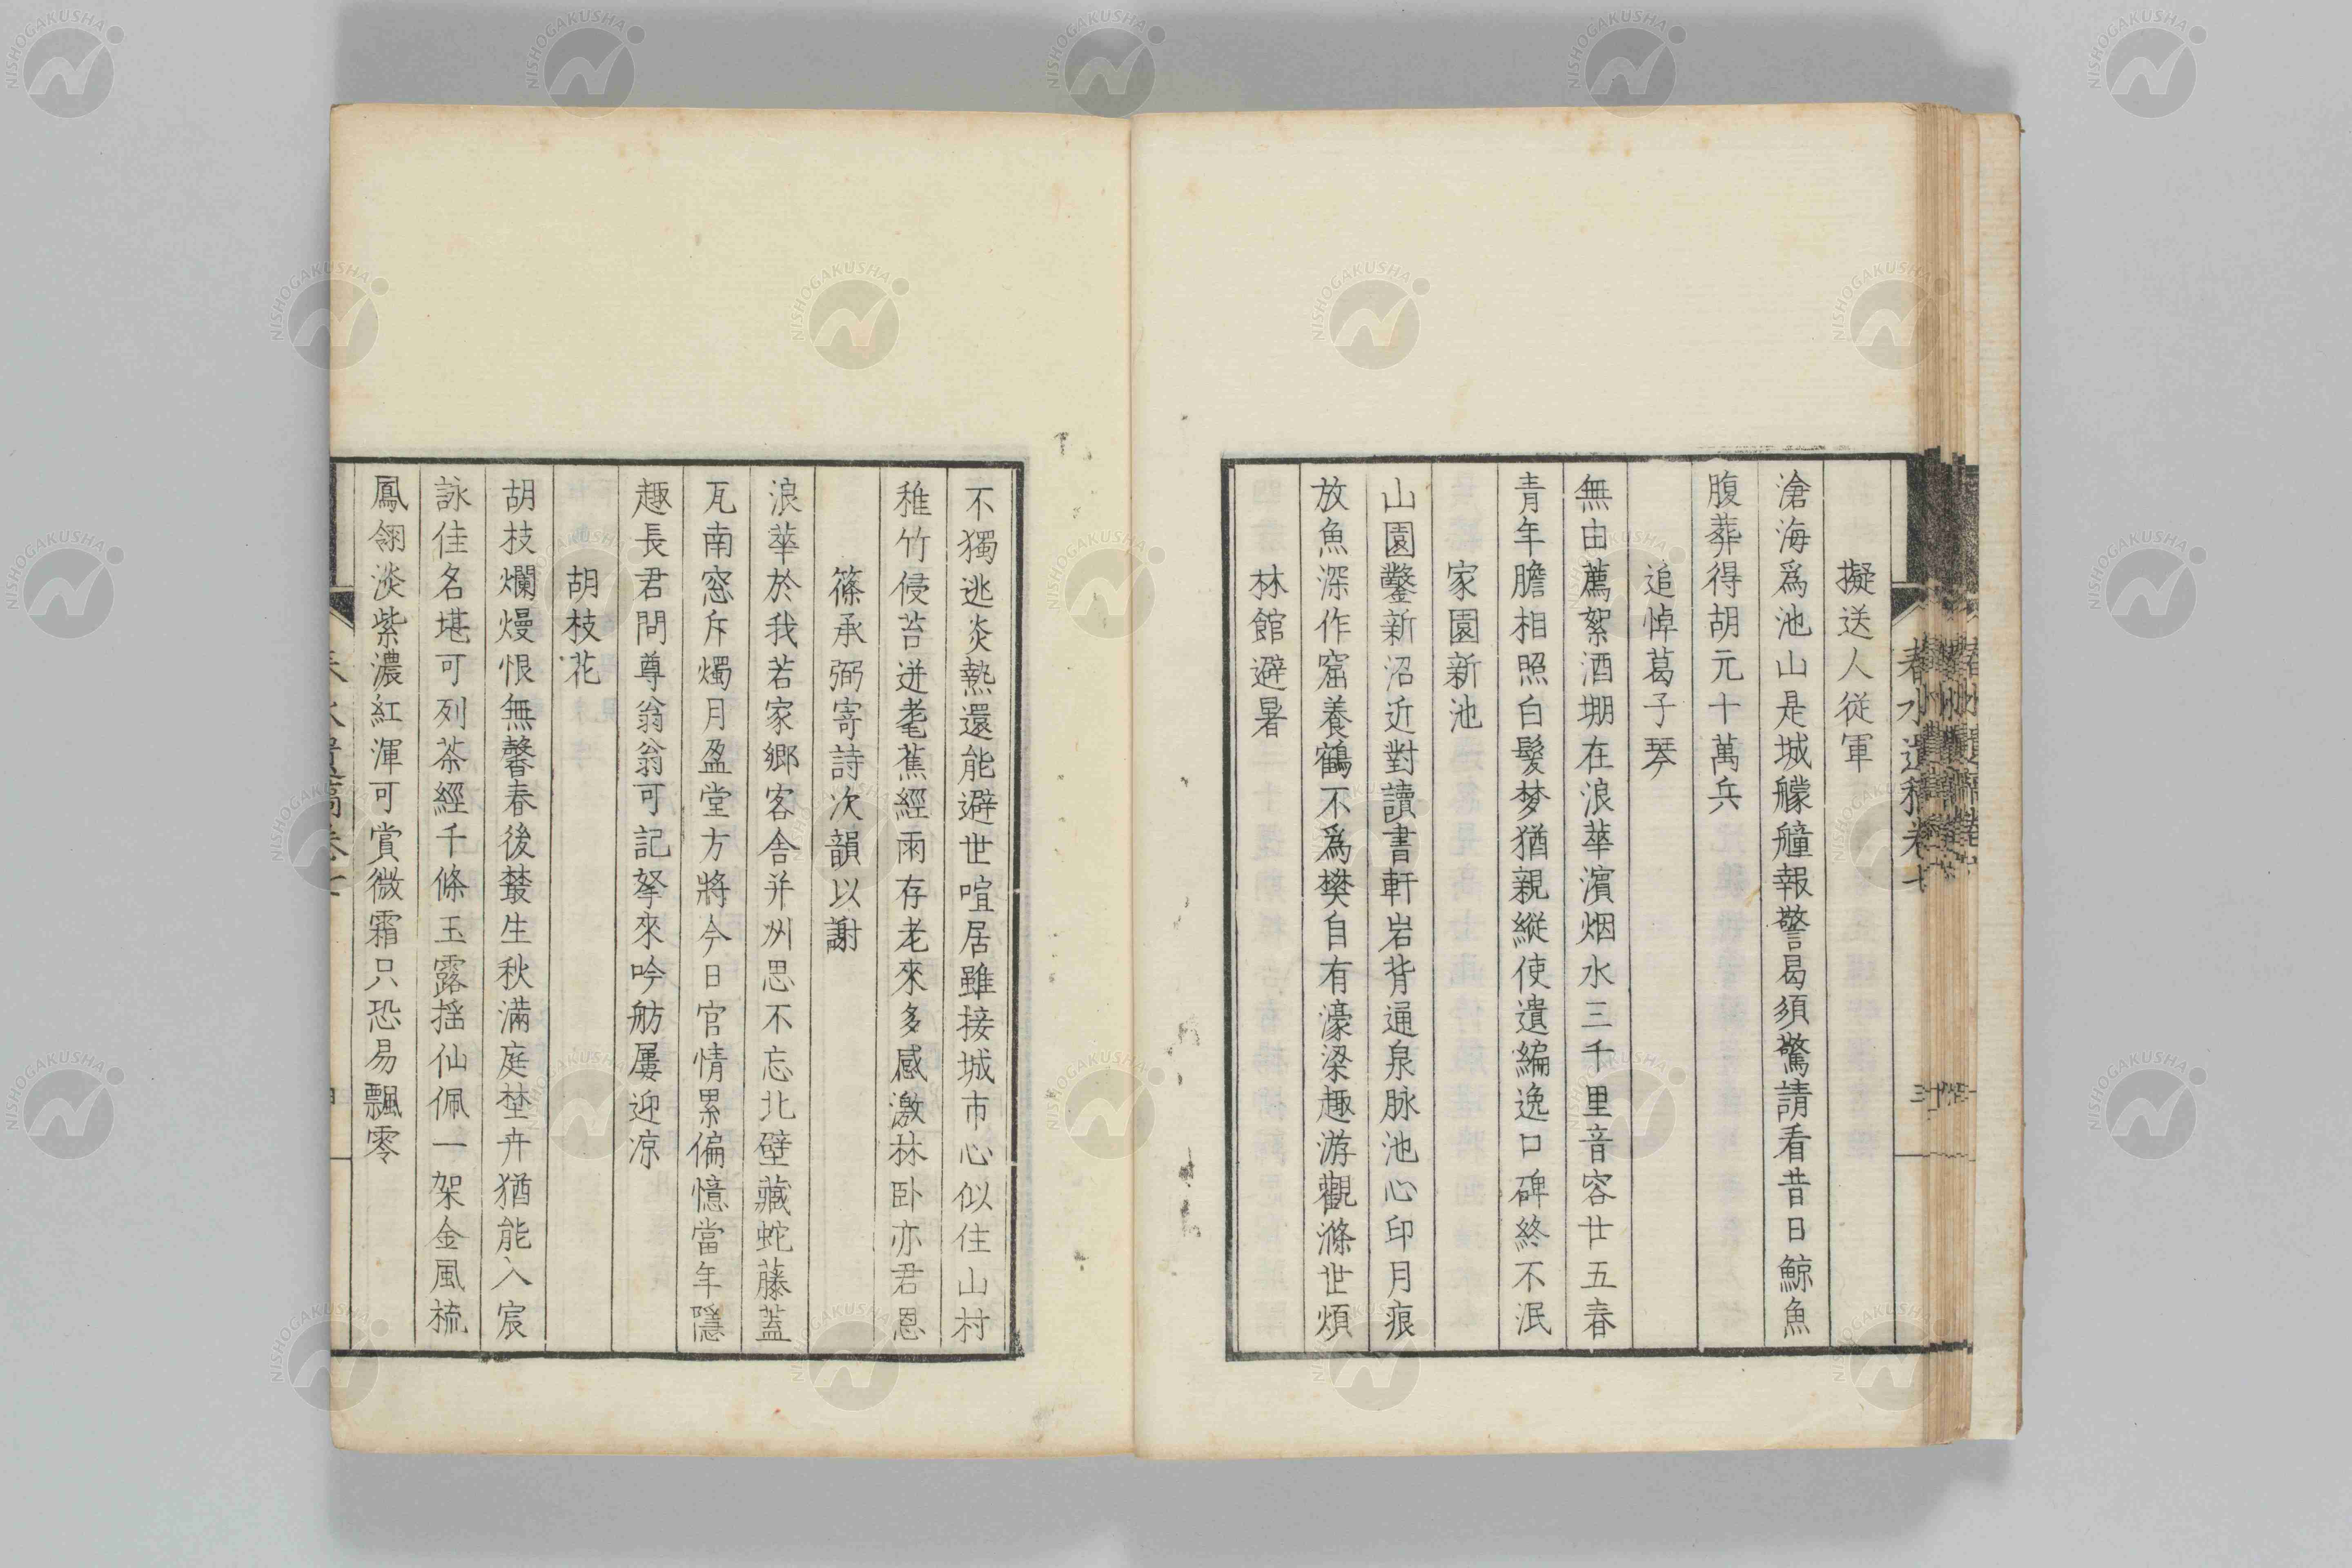 擬送人從軍
滄海爲池山是城艨艟報警曷須驚請看昔日鯨魚
腹葬得胡元十萬兵
追悼葛子琴
無由薦絮酒堋在浪華濱烟水三千里音容廿五春
青年膽相照白髮梦猶親縱使遺編逸口碑終不泯
家園新池
山園鑿新沼近對讀書軒岩背通泉脉池心印月痕
放魚深作窟養鶴不爲樊自有濠梁趣游觀滌世煩
林館避暑
不獨逃炎熱還能避世喧居雖接城市心似住山村
稚竹侵苔迸耄蕉經雨存老來多感激林卧亦君恩
篠承弼寄詩次韻以謝
浪華於我若家鄉客舎并州思不忘北壁藏蛇藤蓋
瓦南窓斥燭月盈堂方將今日官情累偏憶當年隱
趣長君問尊翁翁可記拏來吟舫屢迎凉
胡枝花
胡枝爛熳恨無馨春後藂生秋滿庭埜卉猶能入宸
詠佳名堪可列茶經千條玉露揺仙佩一架金風梳
鳳翎淡紫濃紅渾可賞微霜只恐易飄零
春水遺稿卷七
NISHOGAKUSHA